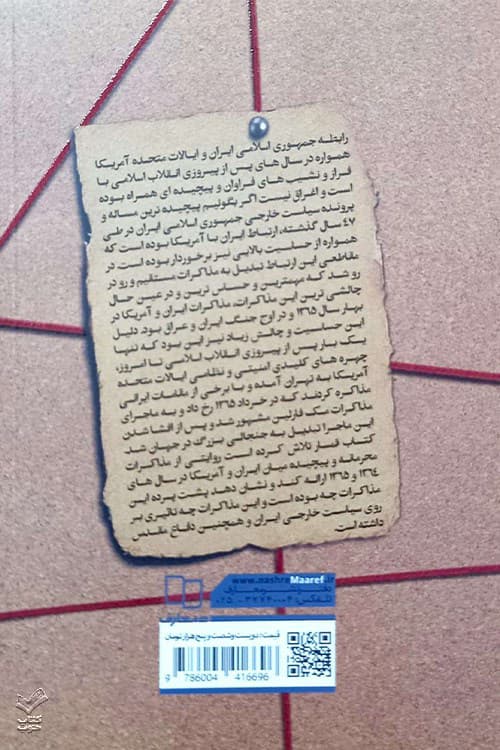 رابطه جمهوری اسلامی ایران و ایالات متحده آمریکا
همواره در سال های پس از پیروزی انقلاب اسلامی با
فراز و نشیب های فراوان و پیچیده ای همراه بوده
است و اغراق نیست اگر بگوئیم پیچیده ترین مساله و
پرونده سیاست خارجی جمهوری اسلامی ایران در طی
۴۷ سال گذشته، ارتباط ایران با آمریکا بوده است که
همواره از حساسیت بالایی نیز برخوردار بوده است. در
مقاطعی این ارتباط تبدیل به مذاکرات مستقیم و رو در
رو شد که مهمترین و حساس ترین و در عین حال
چالشی ترین این مذاکرات، مذاکرات ایران و آمریکا در
بهار سال ۱۳۶۵ و در اوج جنگ ایران و عراق بود. دلیل
این حساسیت و چالش زیاد نیز این بود که تنها
یک بار پس از پیروزی انقلاب اسلامی تا امروز،
چهره های کلیدی امنیتی و نظامی ایالات متحده
آمریکا به تهران آمده و با برخی از مقامات ایرانی
مذاکره کردند که در خرداد ۱۳۶۵ رخ داد و به ماجرای
مذاکرات مک فارلین مشهور شد و پس از افشا شدن
این ماجرا تبدیل به جنجالی بزرگ در جهان شد.
کتاب قمار تلاش کرده است روایتی از مذاکرات
محرمانه و پیچیده میان ایران و آمریکا در سال های
۱۳۶۴ و ۱۳۶۵ ارائه کند و نشان دهد پشت پرده این
مذاکرات چه بوده است و این مذاکرات چه تاثیری بر
روی سیاست خارجی ایران و همچنین دفاع مقدس
داشته است.
www.nashreMaaref.ir
تلفکس: ۳۷۷۴۰۰۰۴ - ۰۲۵
قیمت: دویست و شصت و پنج هزار تومان
9 786004 416696
کتاب